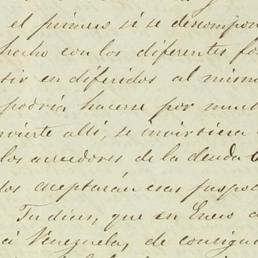 el primero si se descompon
hecho con los diferentes fo
tir en diferidos al mismo
podria hacerse por much
nvierte alli, se invirtiera
los acreedores de la deuda
los aceptarán esas propoc
Tu dias, que en Enero
á Venezuela, de consigu